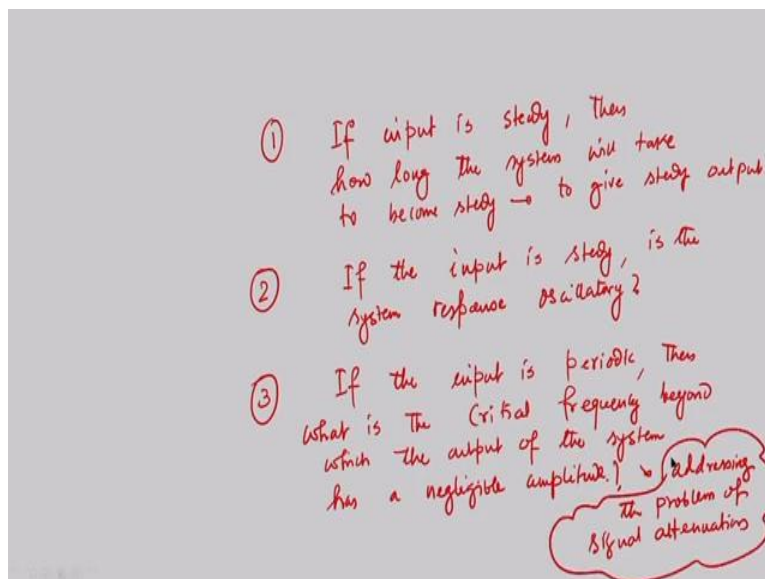 ① If input is steady, then
how long the system will take
to become steady → to give steady output.
② If the input is steady, is the
system response oscillatory?
③ If the input is periodic, then
what is the Critical frequency beyond
which the output of the system
has a negligible amplitude? → addressing
the problem of
signal attenuation